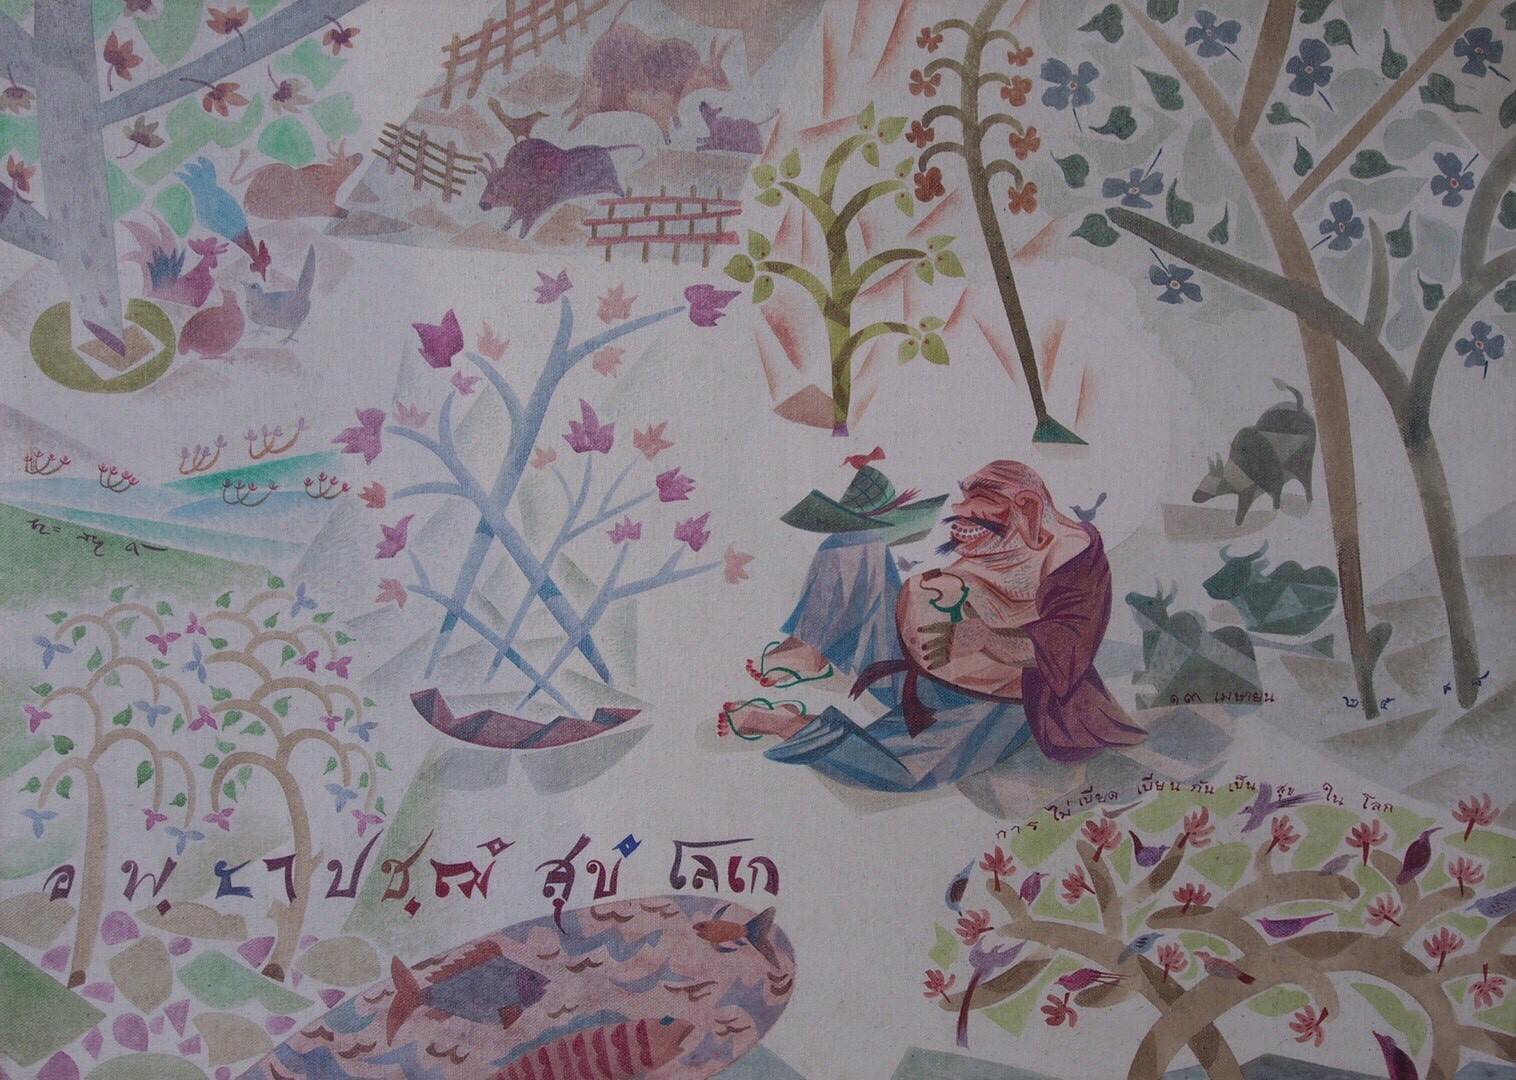 ๑๓ เมษายน
๒๕๑๘
การไม่เบียดเบียนกันเป็นสุขในโลก
อพฺยาปชฺฌํ สุขํ โลเก